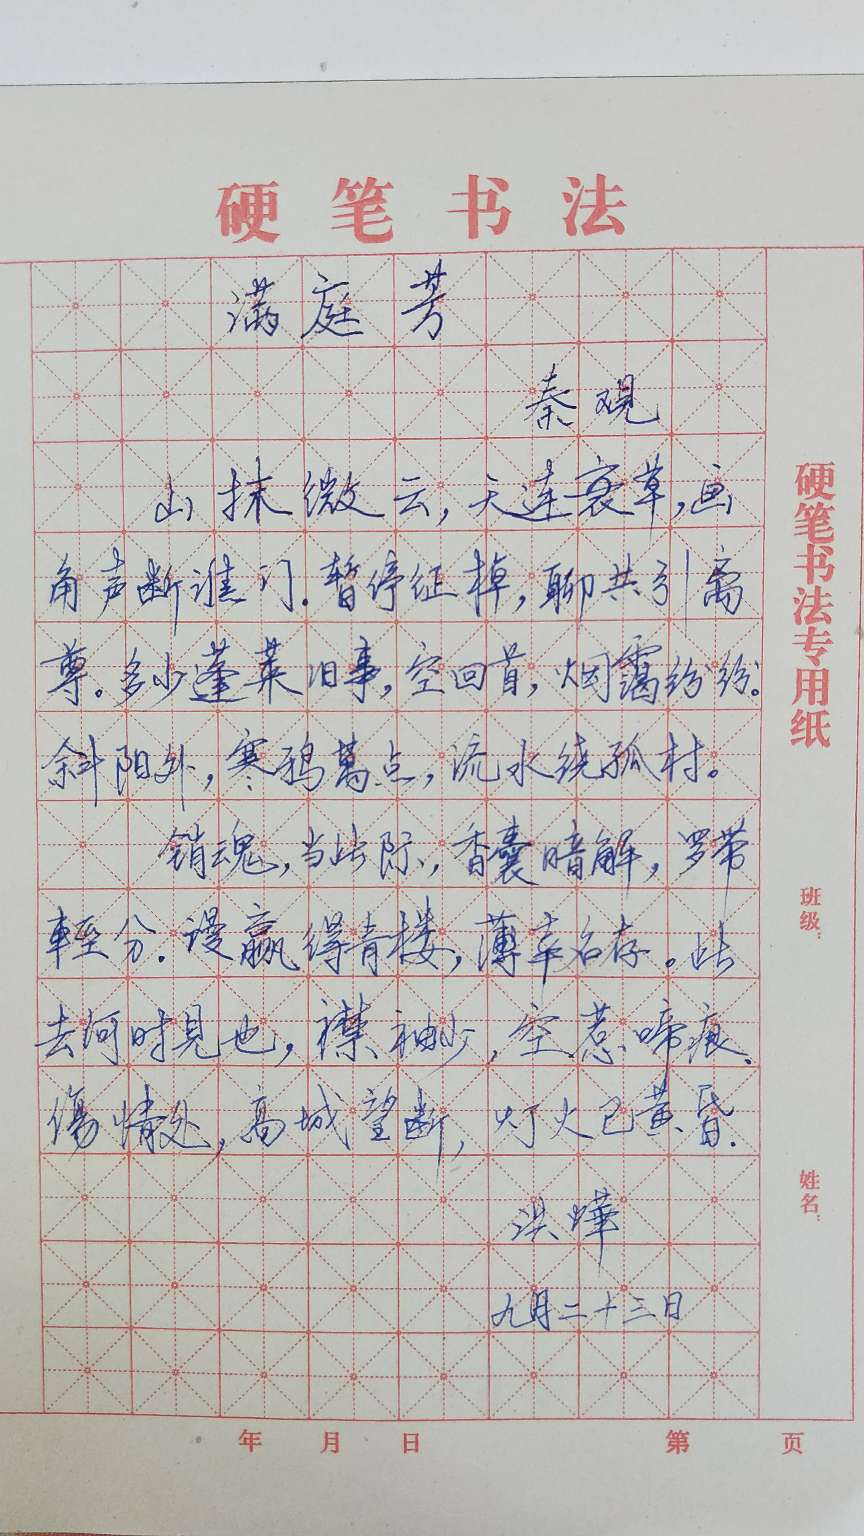 硬笔书法
满庭芳
秦观
山抹微云，天连衰草，画
角声断谯门.暂停征棹，聊共引离
尊。多少蓬莱旧事，空回首，烟霭纷纷。
斜阳外，寒鸦萬点，流水绕孤村。
销魂，当此际，香囊暗解，罗带
輕分.谩赢得青楼，薄幸名存。此
去何时見也，襟袖少，空惹啼痕.
傷情处，高城望断，灯火已黄昏.
洪
九月二十三日
硬笔书法专用纸
班级：
姓名：
年 月 日 第 页